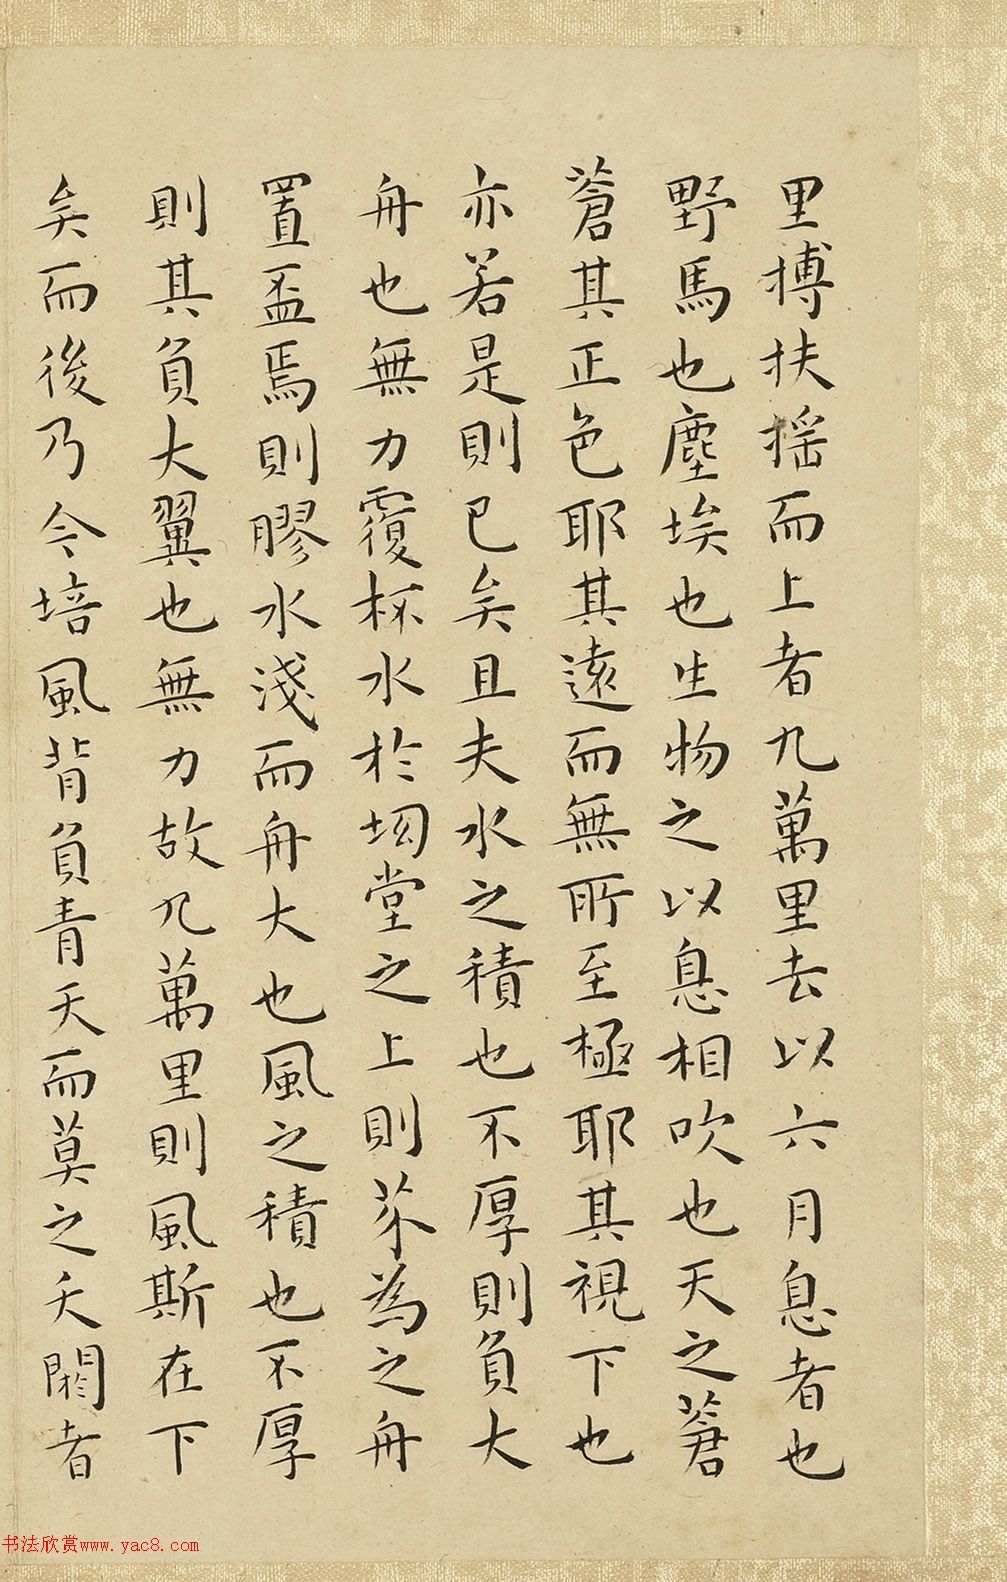 里搏扶摇而上者九萬里去以六月息者也
野馬也塵埃也生物之以息相吹也天之蒼
蒼其正色耶其遠而無所至極耶其視下也
亦若是則已矣且夫水之積也不厚則負大
舟也無力覆杯水於坳堂之上則芥為之舟
置盃焉則膠水淺而舟大也風之積也不厚
則其負大翼也無力故九萬里則風斯在下
矣而後乃今培風背負青天而莫之夭閼者
书法欣赏www.yac8.com